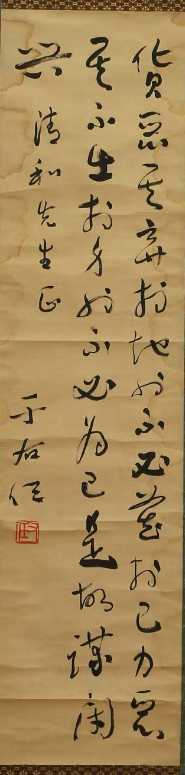 貨惡其棄於地也不必藏於己力惡
其不出於身也不必為己是故謀閉
興
清和先生正
于右任